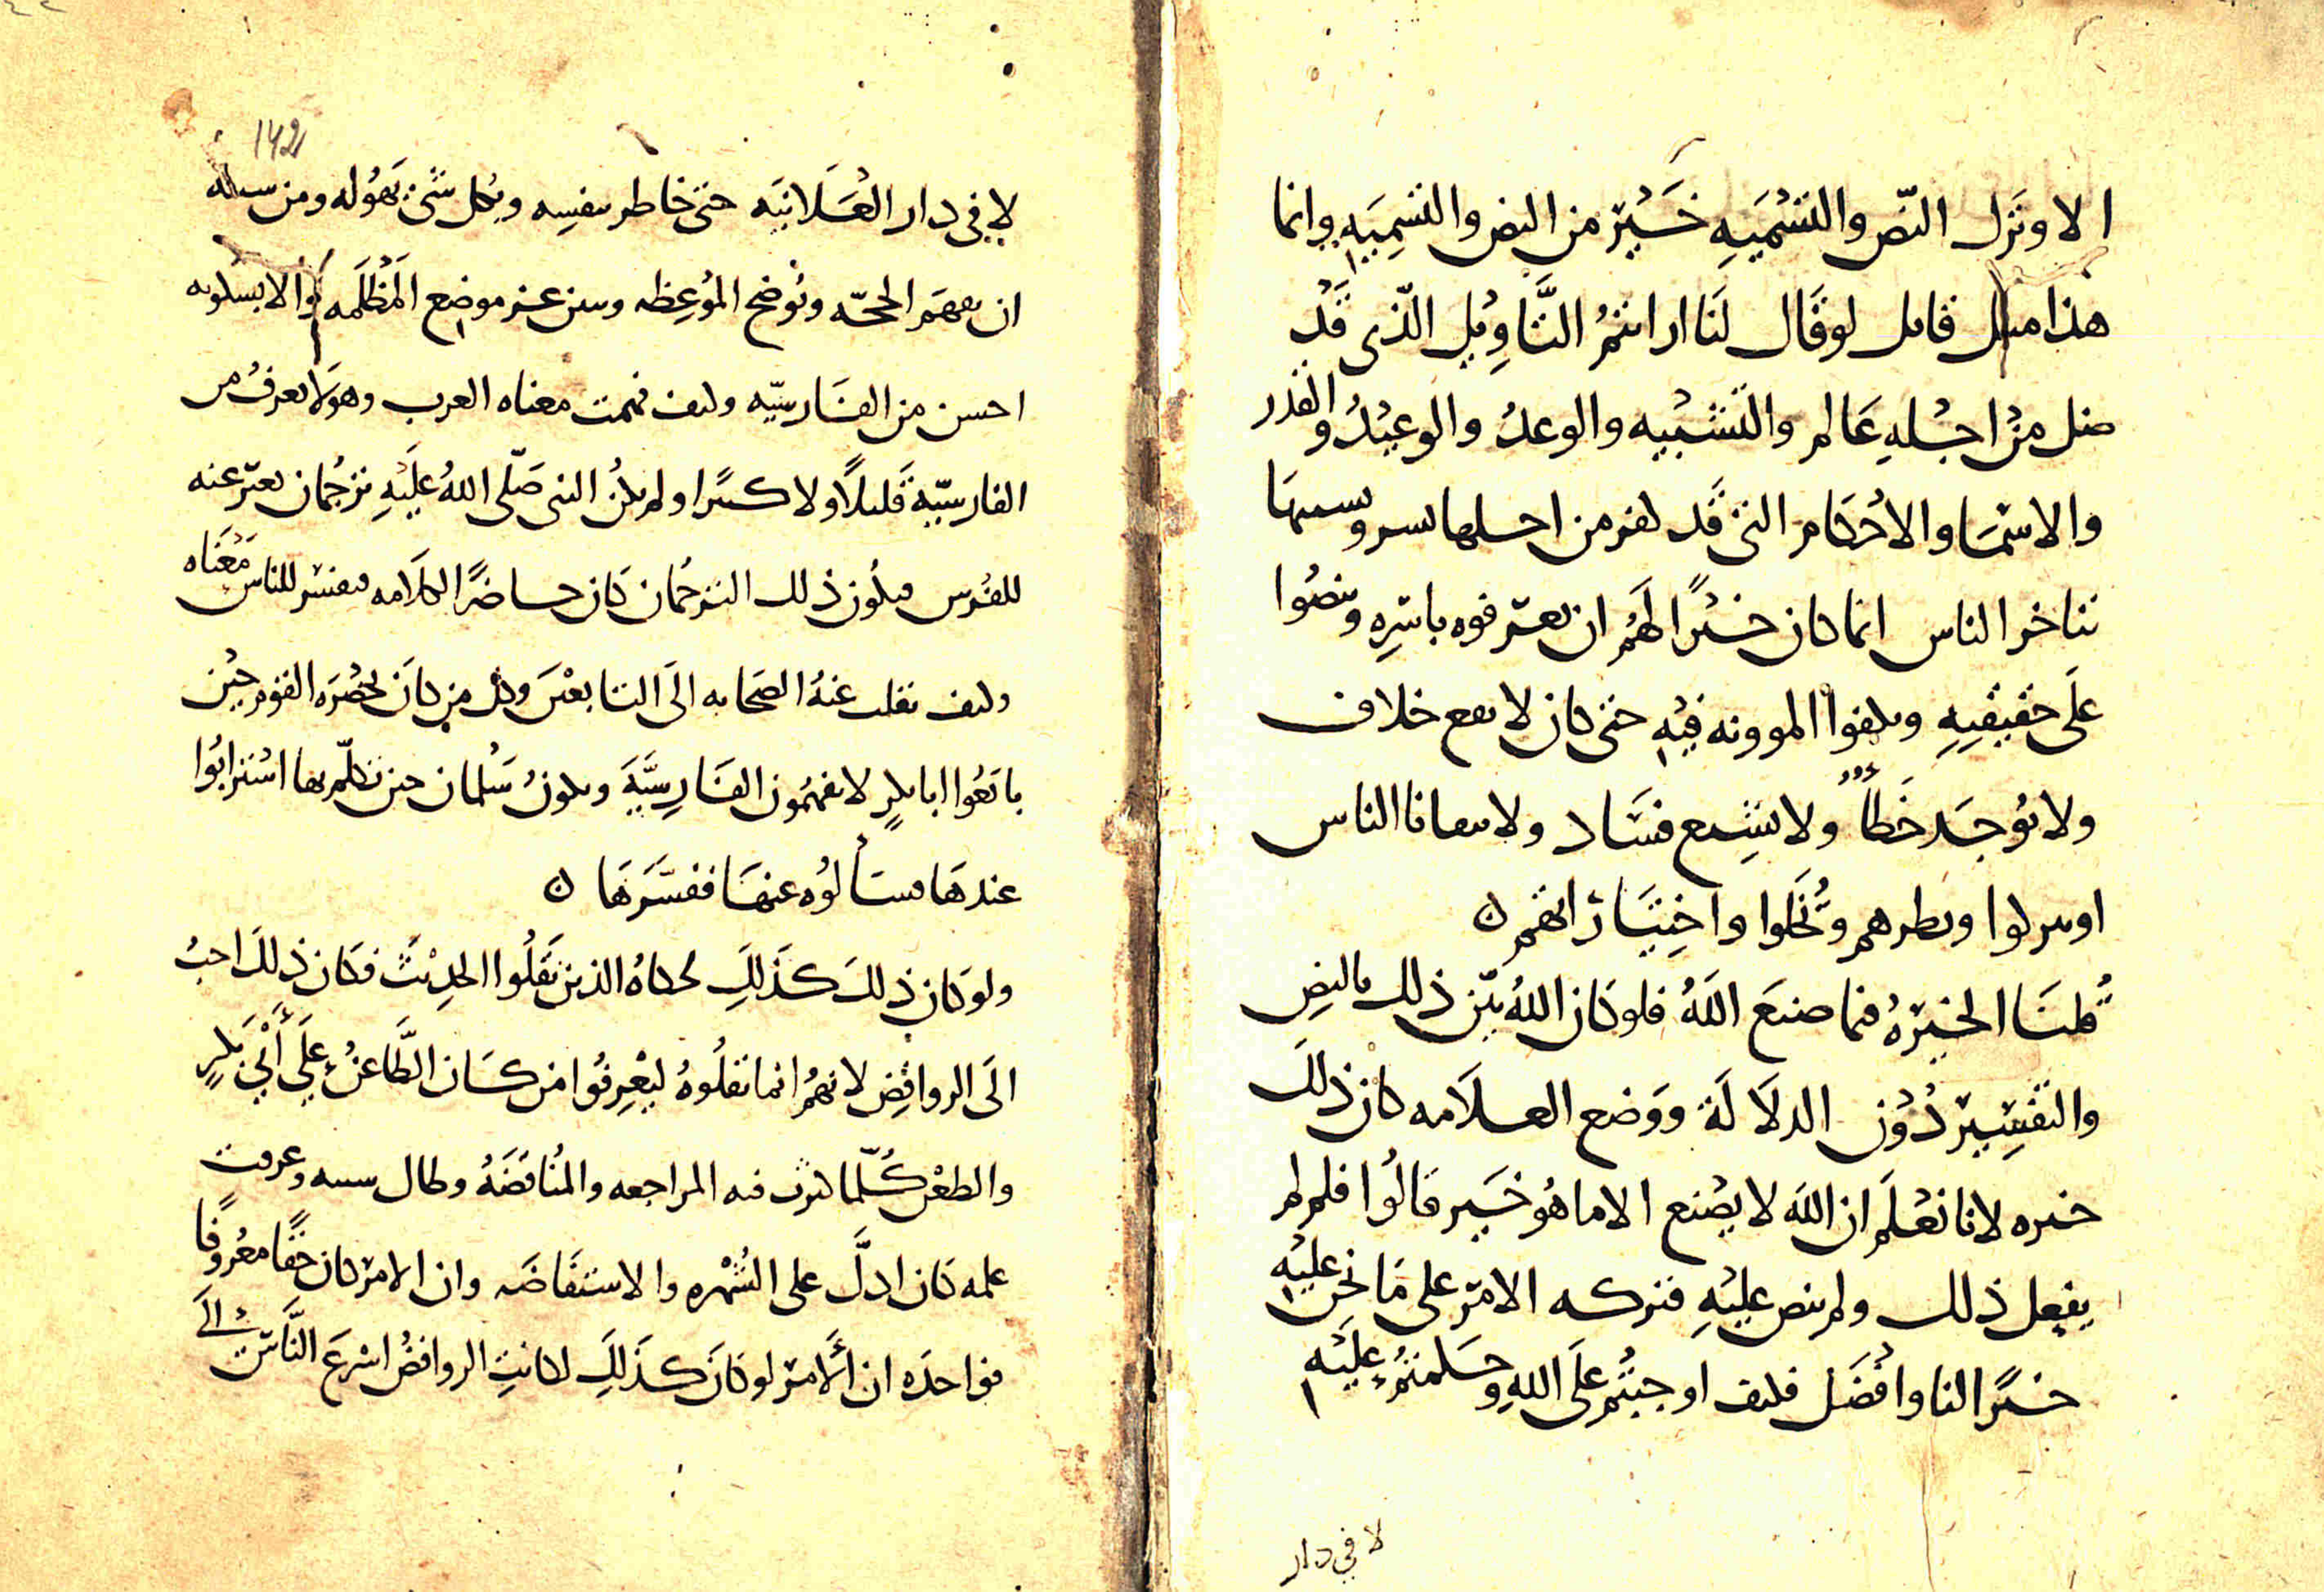 الا وترك النّص والتسْميَهِ خَيْر من النص والتسمِيَهِ وانما
هذا مثل قائل لو قَال لَنا ارايتمُ التَّاوِيل الّذى قَدْ
ضل منْ اجْلهِ عَالم والتشْبيه والوعدُ والوعيْدُ والقدر
والاسْمَا والاحْكام التى قَد كفر من اجلها بشر وبسببهَا
تناحر الناس انما كان خيْرًا لَهُم ان يعرفوه باسْرِه وينصُوا
عَلَى حَقيقتِهِ ويكفوا الموونه فيْهِ حتى كان لا يقع خلاف
ولا يُوجَد خَطأ ولا يشِيع فسَاد ولا يتفانا الناس
او يتركوا ونظرهم وتُخَلوا واختِيَارَاتهم ن
قُلنَا الخيرَهُ فيما صنعَ اللَهُ فلو كان اللهُ بيّن ذلك بالنصِ
والتفسِير دُوْن الدلَالَة ووَضع العلَامه كان ذلكَ
خيره لانا نعْلَم ان اللَه لا يصْنع الا ما هُو خيَر قالُوا فلم لم
يفعل ذلك ولم ينص عليْهِ فتركه الامْر على مَا نحن عليْهِ
خيْرًا لنا وافْضَل فكيف اوجبتُم علَى اللهِ وحَكمتمُ عليَْهِ
لا في دار
142
لا فى دار العَلَانيَه حتى خاطر بنفسِه وبكل شَىْ يَهُوله ومن سبيله
ان يفهَم الحجّه وتُوضح المُوعِظه وبين عن موضع المَظْلَمه والا بسلوبه
احسن من الفَارسيّه وكيف فهمت معناه العرب وهو لَا يعرفُ من
الفارسيّهِ قَليلًا ولا كثيرًا ولم يكنُ النبى صَلّى اللهُ عليَْهِ ترْجُمان يعبّر عنه
للفُرس فيكُون ذلك الترجُمان كَان حاضرًا لكلَامه ففسّر للناس مَعْنَاه
وكيف نقلت عنهُ الصَحابه الَى التابعْينَ وكل من كانَ بحَضْرَه القوم حيْن
بايَعُوا ابا بكرٍ لا يفهَمُون الفَارسِيَّهَ ويكونُ سَلْمان حين تكلّم بها اسْترابُوا
عندهَا فسَألوُه عنهَا ففسَّرَهَا ن
ولو كان ذلكَ كذَلكِ لحكاهُ الذين نَقَلُوا الحدِيْثَ فكان ذلكَ احبُ
الَى الروافِضِ لانهمُ انما نقلُوهُ ليَعْرِفُوا من كَان الطَّاعنُ علَى أَبى بَكرٍ
والطعْن كُلّما كثرت فيه المراجعه والمُناقَضَهُ وطال سببه وعرفت
علمه كان ادلَّ على الشُهْره والاستفَاضَه وان الامْر كان حَقًا معْرُوفًا
فواحدَه ان الأَمْر لو كانَ كذَلكِ لكانتِ الروافضُ اسْرعَ النَّاسِ الَى